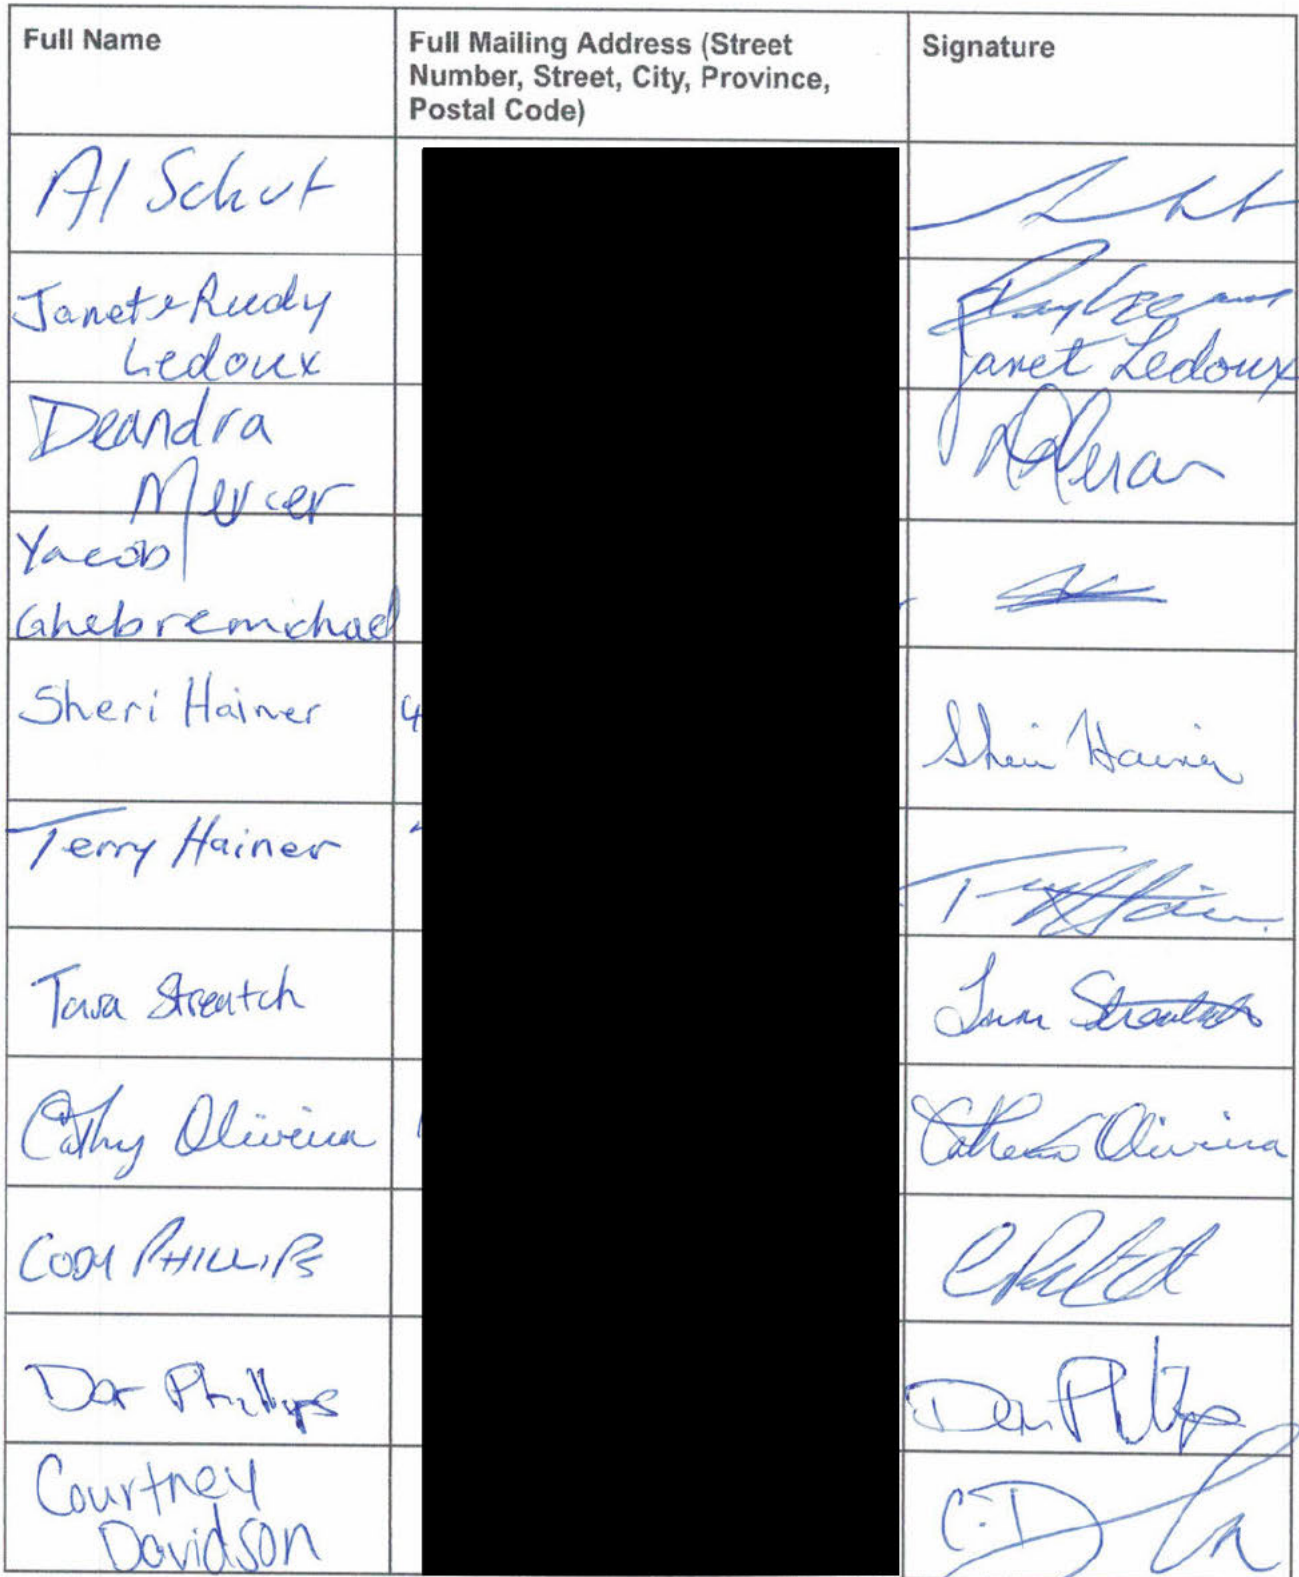 Full Name
Full Mailing Address (Street
Number, Street, City, Province,
Postal Code)
Signature
Al Schut
Janet & Rudy
Ledoux
Janet Ledoux
Deandra
Mercer
Yacob
Ghebremichael
Sheri Hainer
4
Sheri Hainer
Terry Hainer
Tara Streatch
Tara Streatch
Cathy Oliveira
Oliveira
CODY PHILLIPS
Dar Phillips
Phillips
Courtney
Davidson
C.D